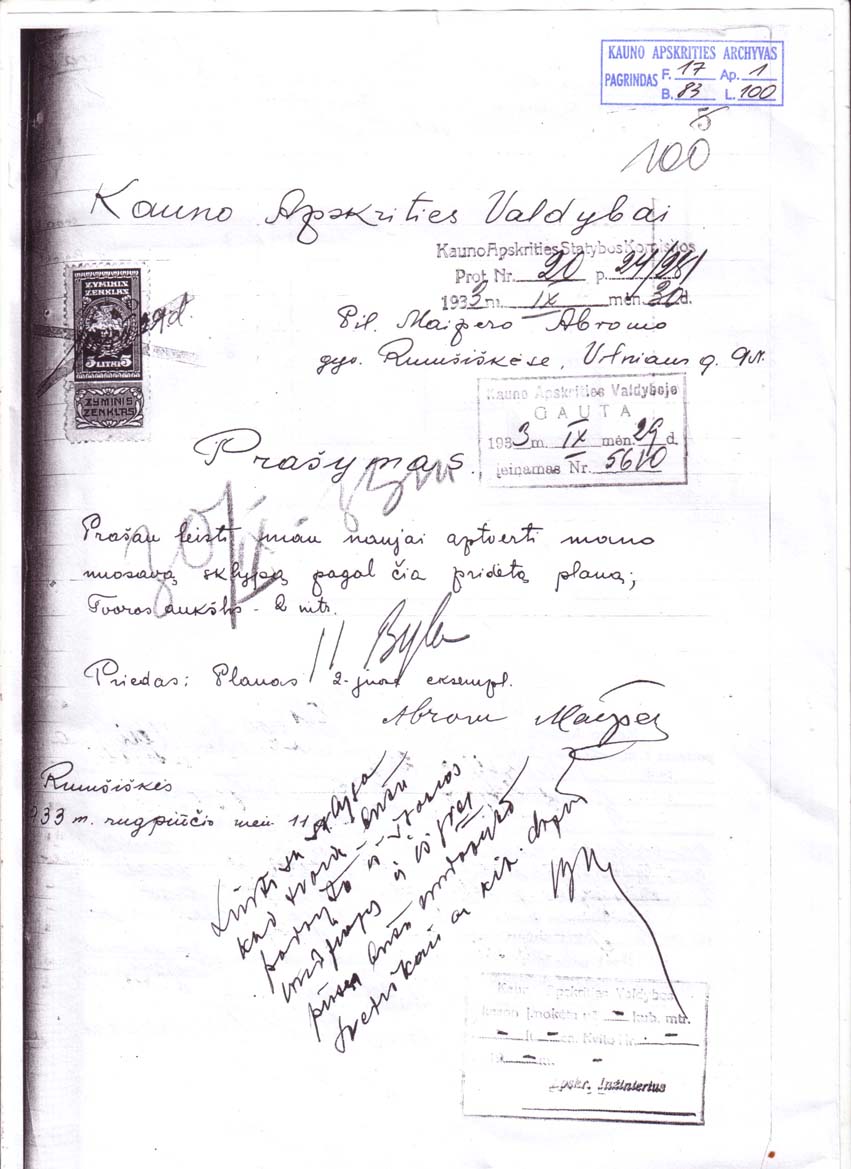 KAUNO APSKRITIES ARCHYVAS
PAGRINDAS F. 17 Ap. 1
B. 83 L. 100
5
100
Kauno Apskrities Valdybai
Kauno Apskrities Statybos Komisijos
Prot. Nr. 20 p. 24/281
1933 m. IX mėn. 30 d.
ŽYMINIS
ŽENKLAS
5 LITAI 5
ŽYMINIS
ŽENKLAS
Pil. Maipero Abromo
gyv. Rumšiškėse, Vilniaus g. 9 N.
Kauno Apskrities Valdyboje
GAUTA
1933 m. IX mėn. 29 d.
Įeinamas Nr. 5610
Prašymas.
Prašau leisti man naujai aptverti mano
nuosavą sklypą pagal čia pridėtą planą;
Tvoros aukštis - 2 mtr.
Byla
Priedas: Planas 2-juose eksempl.
Abrom Maiper
Rumšiškės
933 m. rugpiūčio mėn 11
Leisti su sąlyga
kad tvora būtų
padaryta iš
medžiagos ir iš
pusės būtų nudažyta
ar kit.
Kauno Apskrities Valdybos
įmokėta už - kub. mtr.
- - mėn. Kvito Nr. - -
19 - m. -
Apskr. Inžinierius